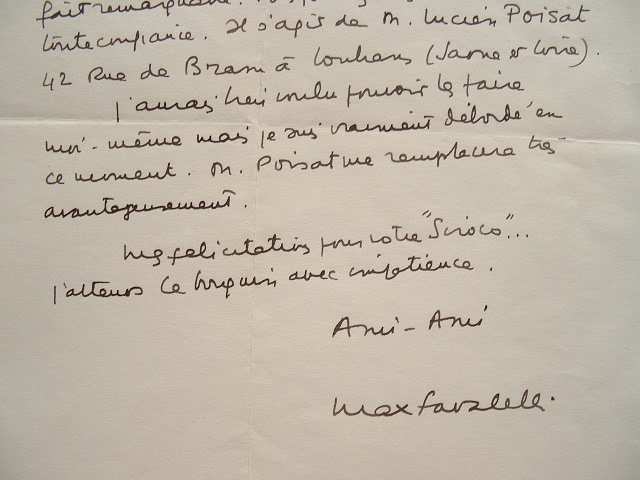 fait remarquable.
toute confiance. Il s'agit de M. Lucien Poisat
42 Rue de Bram à Louhans (Saone et Loire).
J'aurais bien voulu pouvoir le faire
moi-même mais je suis vraiment débordé en
ce moment. M. Poisat me remplacera très
avantageusement.
Mes félicitations pour votre "Siroco"...
J'attends le bouquin avec impatience.
Ami-Ami
Max Favalelli.